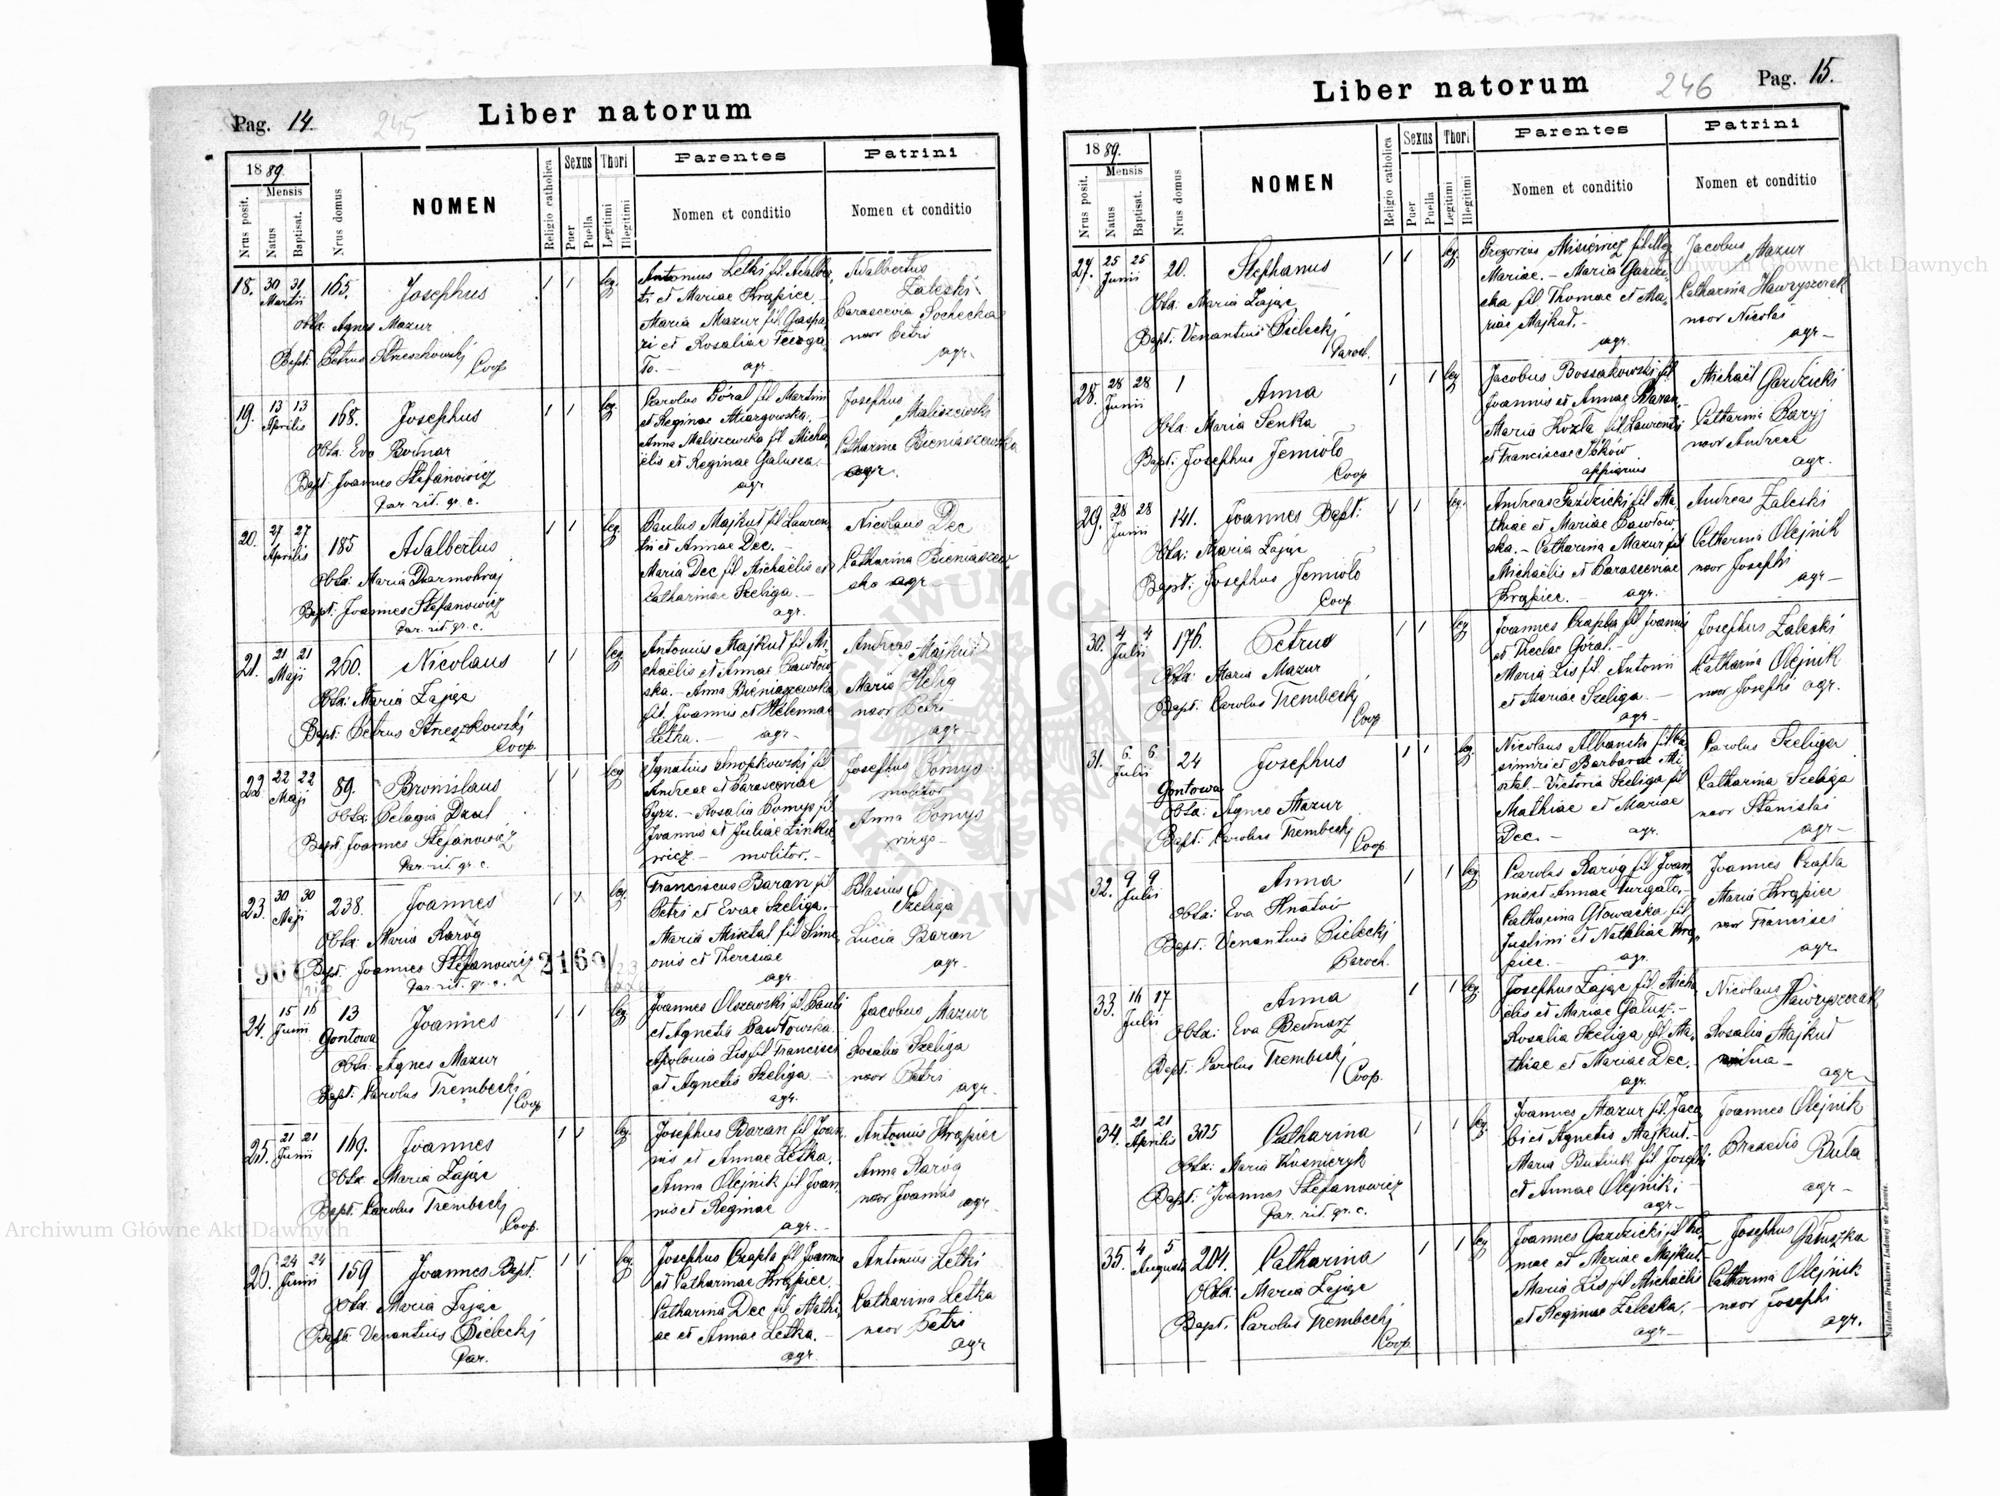 Pag. 14.
245
Liber natorum
1889.
Nrus posit.
Mensis
Natus
Baptisat.
Nrus domus
NOMEN
Religio catholica
Sexus
Puer
Puella
Thori
Legitimi
Illegitimi
Parentes
Nomen et conditio
Patrini
Nomen et conditio
18. 30 31 Martii 165. Josephus 1 1 leg.
Obst. Agnes Mazur
Bapt. Petrus
Coop
Antonius Letki fil. Adalber
ti et Mariae Krąpiec. -
Maria Mazur fil Gaspa
ri et Rosaliae
To. - agr.
Adalbertus
Zaleski
Parascevia
uxor Petri
agr.
19. 13 13 Aprilis 168. Josephus 1 1 leg.
Obst. Eva Bednar
Bapt. Joannes Stefanowicz
Par. rit. gr. c.
Carolus Góral fil Martini
et Reginae
Anna Maliszewska fil Micha
elis et Reginae Galusza. -
agr
Josephus
Maliszewski
Catharina Bieniaszewska
agr.
20. 27 27 Aprilis 185 Adalbertus 1 1 leg.
Obst: Maria Darmohraj
Bapt. Joannes Stefanowicz
Par. rit. gr. c.
Paulus Majkut fil Lauren
tii et Annae Dec.
Maria Dec fil Michaelis et
Catharinae Szeliga. -
agr.
Nicolaus Dec
Catharina Bieniaszew
ska agr -
21. 21 21 Maji 260. Nicolaus 1 1 leg.
Obst: Maria Zając
Bapt: Petrus
Coop.
Antonius Majkut fil Mi
chaelis et Annae Pawłow
ska. - Anna Bieniaszewska
fil. Joannis et Helennae
Letka. - agr -
Andreas Majkut
Maria
uxor Petri
agr -
22. 22 22 Maji 89. Bronislaus 1 1 leg
Obst: Pelagia
Bapt. Joannes Stefanowicz
Par. rit. gr. c.
Ignatius Snopkowski fil
Andreae et Parasceviae
Pyrz. - Rosalia Pomys fil
Joannis et Juliae Zinkie
wicz - molitor. -
Josephus Pomys
molitor
Anna Pomys
virgo -
23. 30 30 Maji 238. Joannes 1 1 leg.
Obst: Maria Raróg
Bapt: Joannes Stefanowicz
Par. rit. gr. c.
2160
Franciscus Baran fil
Petri et Evae Szeliga. -
Maria Misztal fil Sime
onis et Theresiae
agr.
Blasius
Szeliga
Lucia Baran
agr.
24. 15 16 Junii 13 Joannes 1 1 leg
Gontowa
Obst: Agnes Mazur
Bapt. Carolus Trembecki
Coop
Joannes Olszewski fil Pauli
et Agnetis Pawłowska.
Apolonia Lis fil Francisci
et Agnetis Szeliga -
agr.
Jacobus Mazur
Rosalia Szeliga
uxor Petri
agr.
25. 21 21 Junii 169. Joannes 1 1 leg.
Obst: Maria Zając
Bapt. Carolus Trembecki
Coop.
Josephus Baran fil Joan
nis et Annae Letka.
Anna Olejnik fil Joan
nis et Reginae
agr. -
Antonius Krąpiec
Anna Raróg
uxor Joannis
agr -
26. 24 24 Junii 159 Joannes Bapt. 1 1 leg
Obst. Maria Zając
Bapt: Venantius Bielecki
Par.
Josephus Czapla fil Joannis
et Catharinae Krąpiec.
Catharina Dec fil Mathi
ae et Annae Letka. -
agr.
Antonius Letki
Catharina Letka
uxor Petri
agr
Liber natorum
246
Pag. 15.
1889.
Nrus posit.
Mensis
Natus
Baptisat.
Nrus domus
NOMEN
Religio catholica
Sexus
Puer
Puella
Thori
Legitimi
Illegitimi
Parentes
Nomen et conditio
Patrini
Nomen et conditio
27. 25 25 Junii 20. Stephanus 1 1 leg.
Obst: Maria Zając
Bapt: Venantius Bielecki
Paroch.
Gregorius Misiewicz fil illeg
Mariae. - Maria Gardzi
cka fil Thomae et Ma
riae Majkut. -
agr.
Jacobus Mazur
Catharina Hawryszczak
uxor Nicolai
agr -
28. 28 28 Junii 1 Anna 1 1 leg
Obst: Maria Senka
Bapt: Josephus Jemioło
Coop
Jacobus Bossakowski fil
Joannis et Annae Baran. -
Maria Kozła fil Laurentii
et Franciscae
Michael Gardzicki
Catharina
uxor Andreae
agr.
29. 28 28 Junii 141. Joannes Bapt: 1 1 leg.
Obst: Maria Zając
Bapt: Josephus Jemioło
Coop
Andreas Gardzicki fil Ma
thiae et Mariae Pawłow
ska. - Catharina Mazur fil
Michaelis et Parasceviae
Krąpiec. - agr.
Andreas Zaleski
Catharina Olejnik
uxor Josephi
agr -
30. 4 4 Julii 176. Petrus 1 1 leg
Obst: Maria Mazur
Bapt: Carolus Trembecki
Coop
Joannes Czapla fil Joannis
et Theclae Góral. -
Maria Lis fil. Antonii
et Mariae Szeliga. -
agr -
Josephus Zaleski
Catharina Olejnik
uxor Josephi agr.
31. 6 6 Julii 24 Josephus 1 1 leg.
Gontowa
Obst: Agnes Mazur
Bapt: Carolus Trembecki
Coop
Nicolaus Albanski fil Ca
simiri et Barbarae Mi
sztal. - Victoria Szeliga fil
Mathiae et Mariae
Dec. - agr.
Carolus Szeliga
Catharina Szeliga
uxor Stanislai
agr -
32. 9 9 Julii Anna 1 1 leg
Obst: Eva Hnatów
Bapt: Venantius Bielecki
Paroch.
Carolus Raróg fil Joan
nis et Annae
Catharina Głowacka fil
Justini et Nathaliae Krą
piec. - agr.
Joannes Czapla
Maria Krąpiec
uxor Francisci
agr
33. 16 17 Julii Anna 1 1 leg
Obst: Eva Bednarz
Bapt: Carolus Trembecki
Coop.
Josephus Zając fil. Micha
elis et Mariae
Rosalia Szeliga fil. Ma
thiae et Mariae Dec.
agr.
Nicolaus Hawryszczak
Rosalia Majkut
agr -
34. 21 21 Aprilis 305 Catharina 1 1 leg.
Obst: Maria Kusnierzyk
Bapt: Joannes Stefanowicz
Par. rit. gr. c.
Joannes Mazur fil. Jaco
bi et Agnetis Majkut. -
Maria fil Josephi
et Annae Olejnik. -
agr -
Joannes Olejnik
Praxedis Buła
agr -
35. 4 5 Augusti 204. Catharina 1 1 leg
Obst: Maria Zając
Bapt. Carolus Trembecki
Coop.
Joannes Gardzicki fil Tho
mae et Mariae Majkut. -
Maria Lis fil Michaelis
et Reginae Zaleska. -
agr -
Josephus Gałuszka
Catharina Olejnik
uxor Josephi
agr.
Nakładem Drukarni Ludowej we Lwowie.
Archiwum Główne Akt Dawnych
Archiwum Główne Akt Dawnych